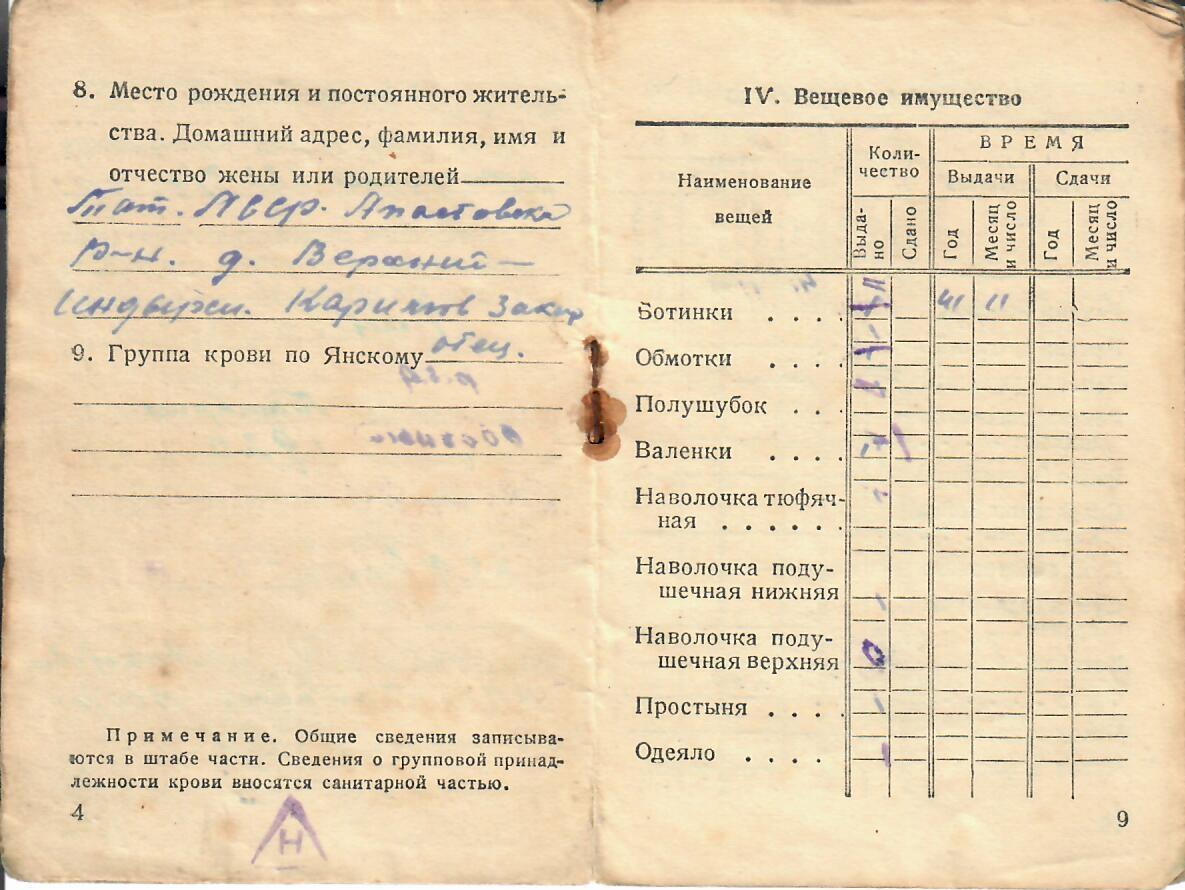 8. Место рождения и постоянного житель-
ства. Домашний адрес, фамилия, имя и
отчество жены или родителей
Тат. АССР. Апастовска
р-н. д. Верхний-
Индырчи. Каримов Закир
9. Группа крови по Янскому отец.
Примечание. Общие сведения записыва-
ются в штабе части. Сведения о групповой принад-
лежности крови вносятся санитарной частью.
4
Н
IV. Вещевое имущество
Наименование
вещей
Коли-
чество
ВРЕМЯ
Выдачи
Сдачи
Выда-
но
Сдано
Год
Месяц
и число
Год
Месяц
и число
Ботинки . . . . 41 11
Обмотки . . . .
Полушубок . . .
Валенки . . . .
Наволочка тюфяч-
ная . . . . . .
Наволочка поду-
шечная нижняя
Наволочка поду-
шечная верхняя
Простыня . . . .
Одеяло . . . .
9